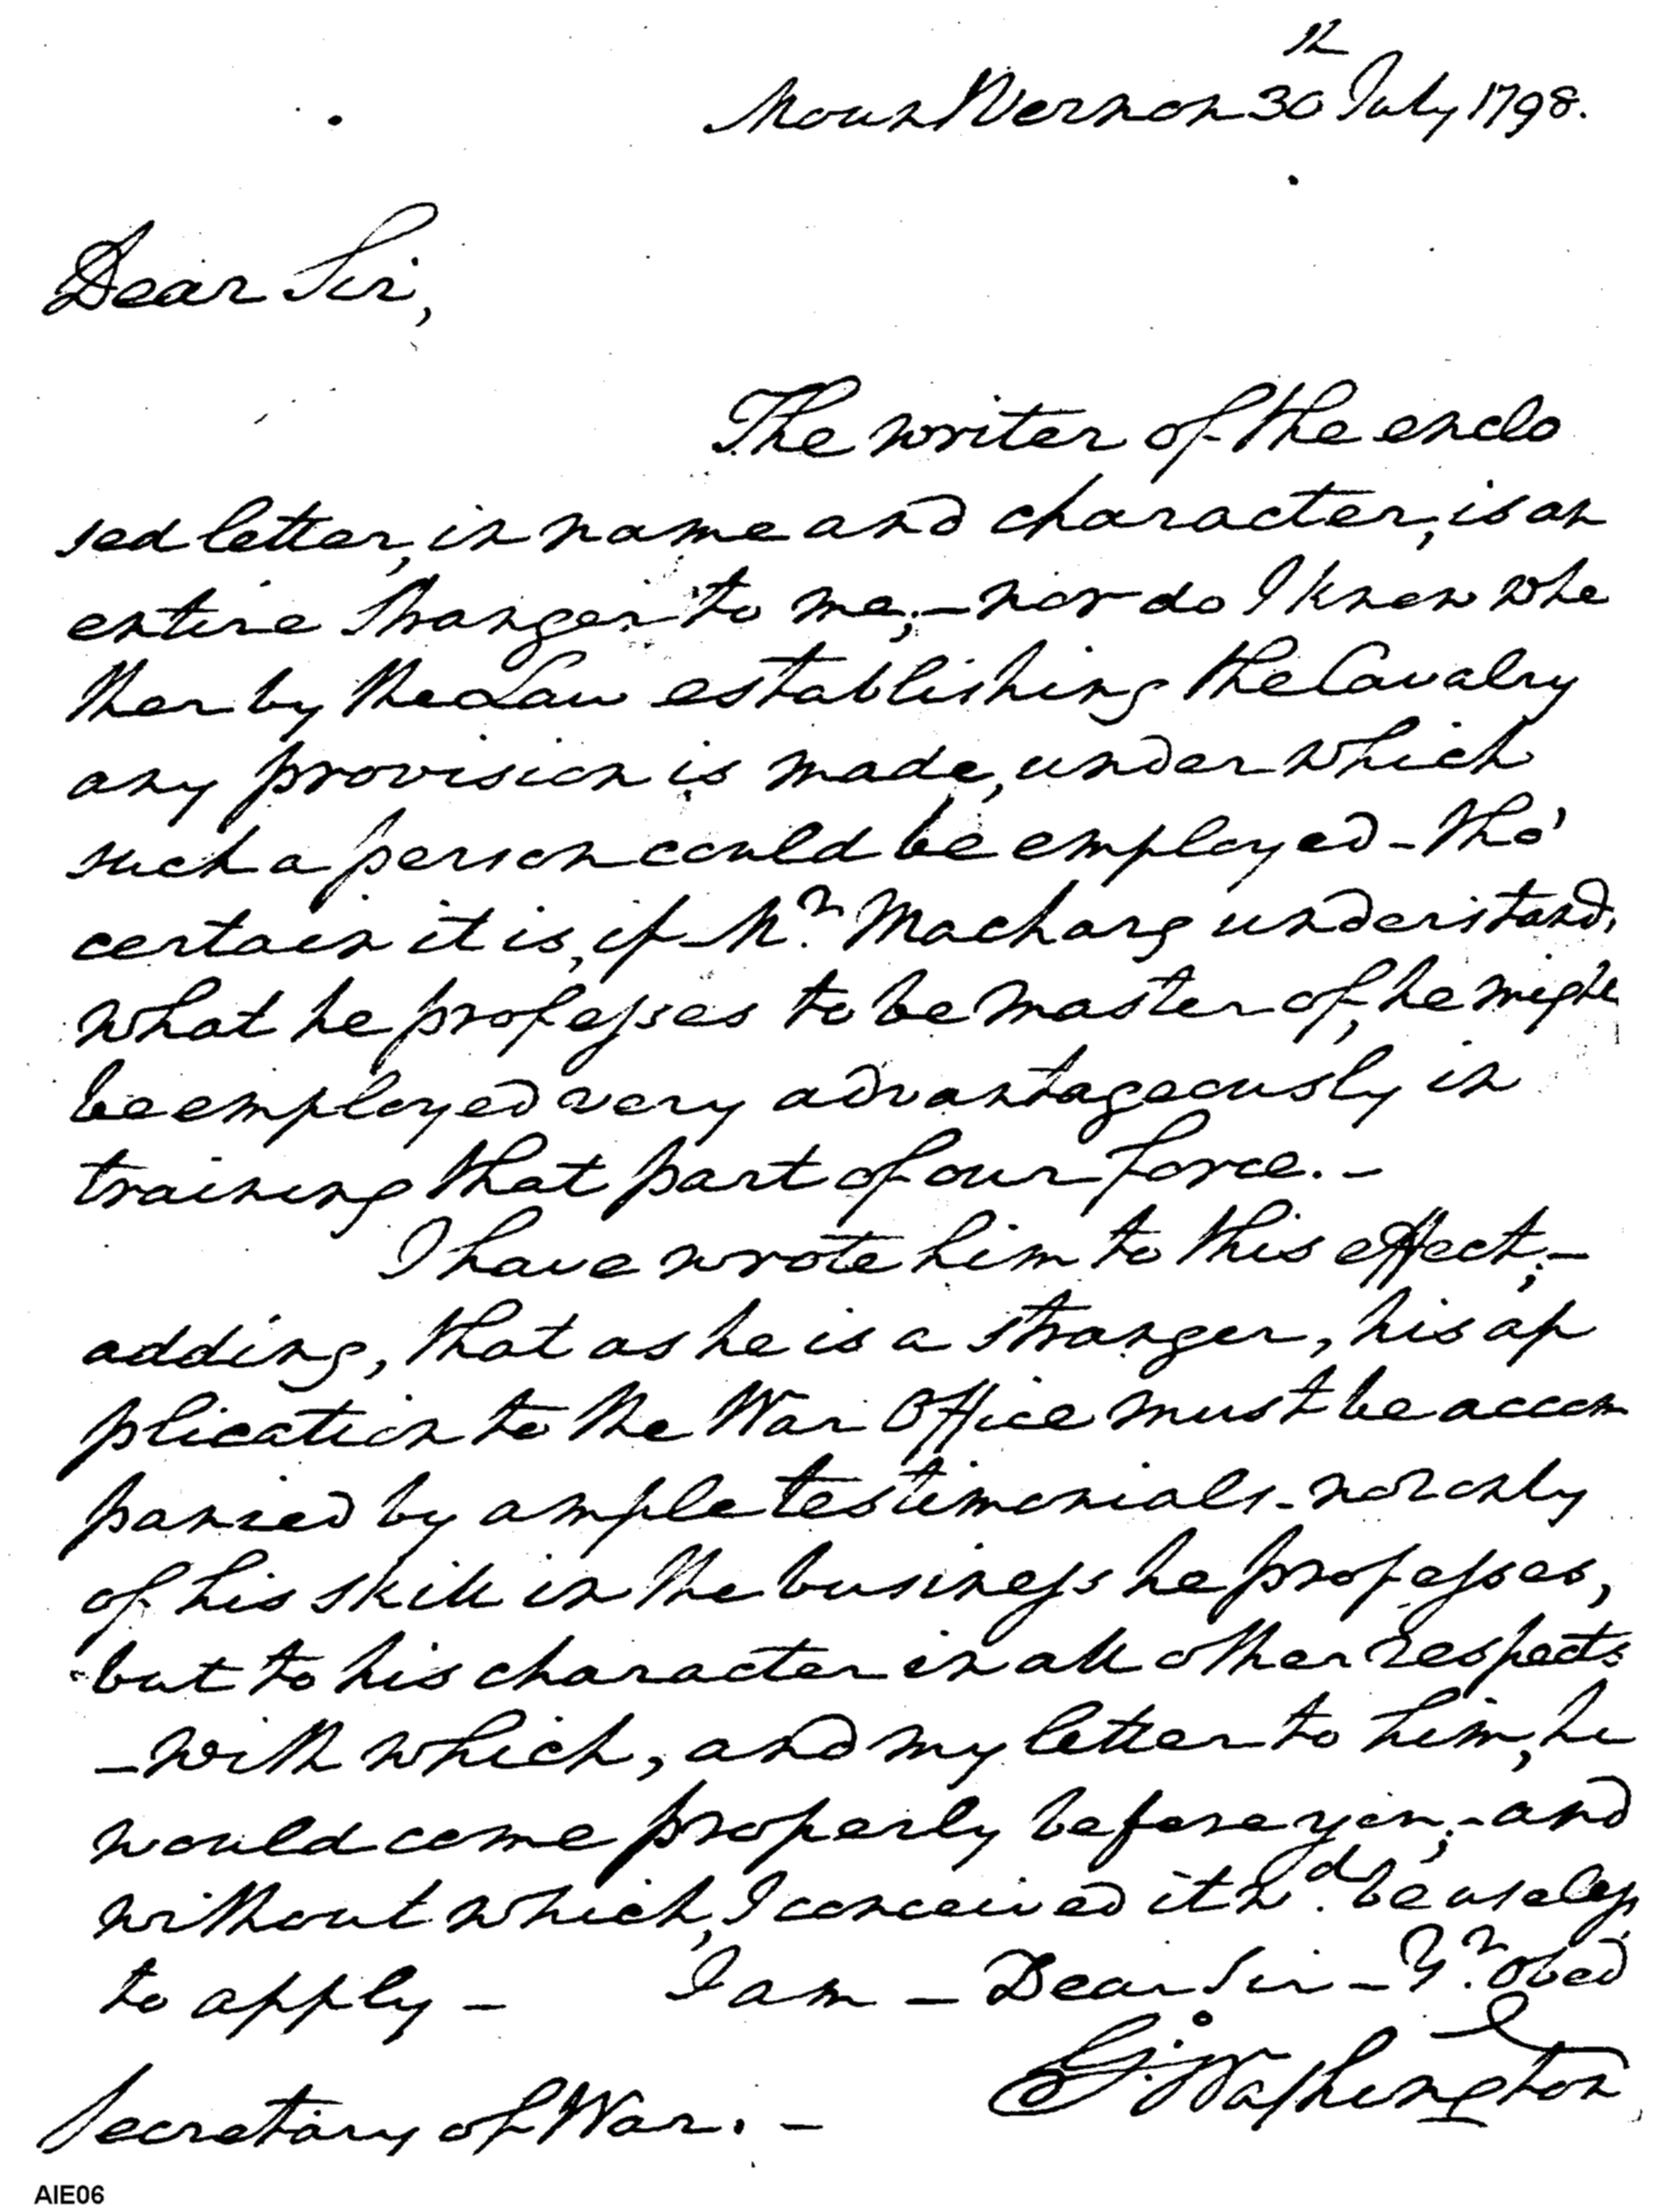 Mount Vernon 30th July 1798.
Dear Sir,
The writer of the enclo
sed letter, in name and character, is an
entire stranger to me;—nor do I know whe
ther by the Law establishing the Cavalry
any provision is made, under which
such a person could be employed—tho'
certain it is, if Mr. Macharg understands
what he professes to be master of, he might
be employed very advantageously in
training that part of our force.—
I have wrote him to this effect;—
adding, that as he is a stranger, his ap
plication to the War Office must be accom
panied by ample testimonials—not only
of his skill in the business he professes,
but to his character in all other respects
—with which, and my letter to him, he
would come properly before you;—and
without which, I conceived it wd. be useless
to apply— I am—Dear Sir—Yr. Obed
Go: Washington
Secretary of War.—
AIE06